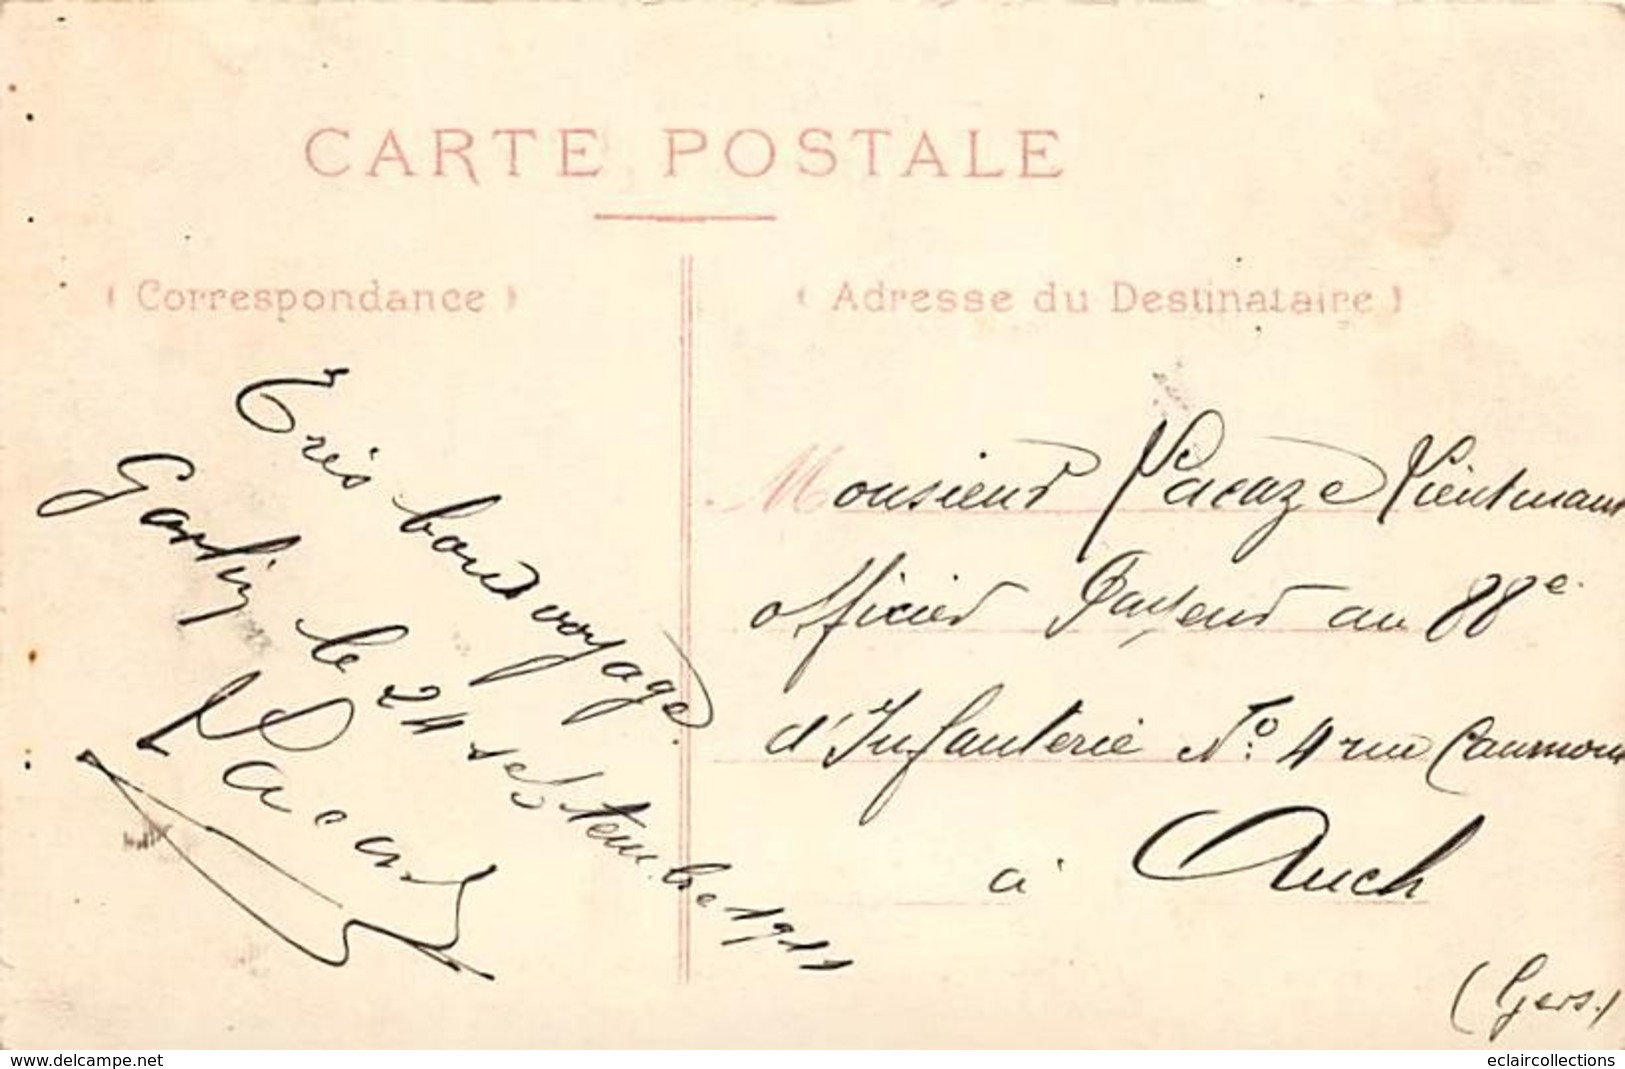 CARTE POSTALE
( Correspondance )
( Adresse du Destinataire )
Très bon voyage.
le 24 septembre 1911
Monsieur Lacaze Lieutenant
officier Payeur au 88e
d'Infanterie No. 4 rue Caumont
à Auch
(Gers.)
www.delcampe.net
eclaircollections